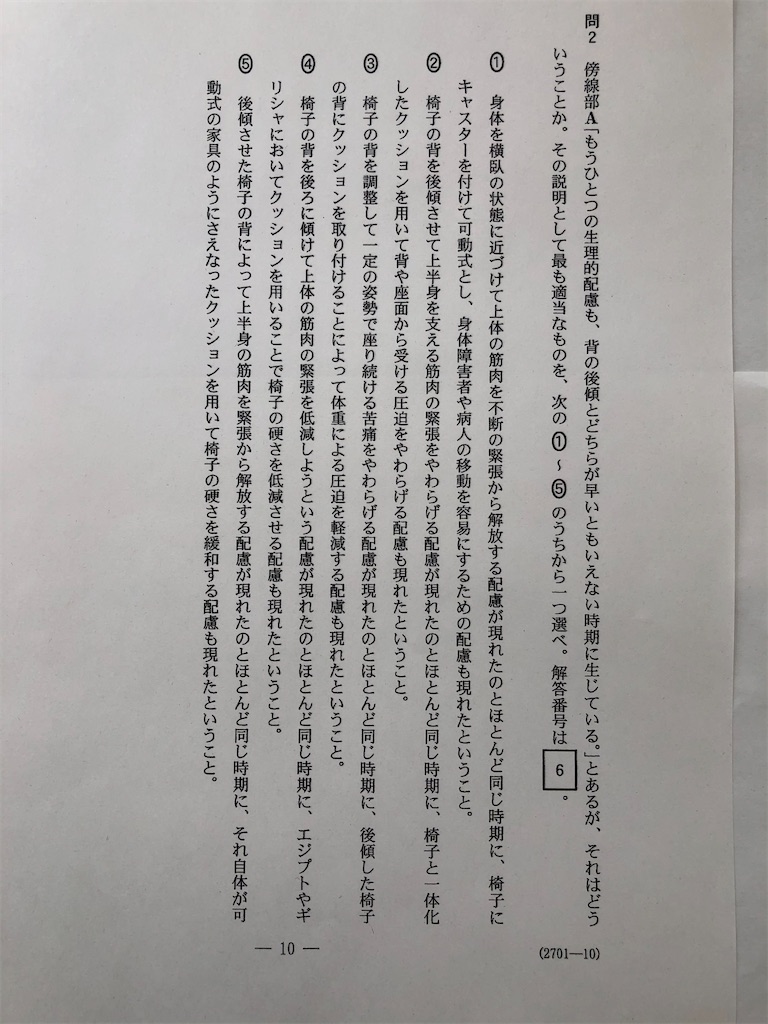 問2 傍線部A「もうひとつの生理的配慮も、背の後傾とどちらが早いともいえない時期に生じている。」とあるが、それはどう
いうことか。その説明として最も適当なものを、次の①～⑤のうちから一つ選べ。解答番号は 6 。
① 身体を横臥の状態に近づけて上体の筋肉を不断の緊張から解放する配慮が現れたのとほとんど同じ時期に、椅子に
キャスターを付けて可動式とし、身体障害者や病人の移動を容易にするための配慮も現れたということ。
② 椅子の背を後傾させて上半身を支える筋肉の緊張をやわらげる配慮が現れたのとほとんど同じ時期に、椅子と一体化
したクッションを用いて背や座面から受ける圧迫をやわらげる配慮も現れたということ。
③ 椅子の背を調整して一定の姿勢で座り続ける苦痛をやわらげる配慮が現れたのとほとんど同じ時期に、後傾した椅子
の背にクッションを取り付けることによって体重による圧迫を軽減する配慮も現れたということ。
④ 椅子の背を後ろに傾けて上体の筋肉の緊張を低減しようという配慮が現れたのとほとんど同じ時期に、エジプトやギ
リシャにおいてクッションを用いることで椅子の硬さを低減させる配慮も現れたということ。
⑤ 後傾させた椅子の背によって上半身の筋肉を緊張から解放する配慮が現れたのとほとんど同じ時期に、それ自体が可
動式の家具のようにさえなったクッションを用いて椅子の硬さを緩和する配慮も現れたということ。
— 10 —
(2701—10)